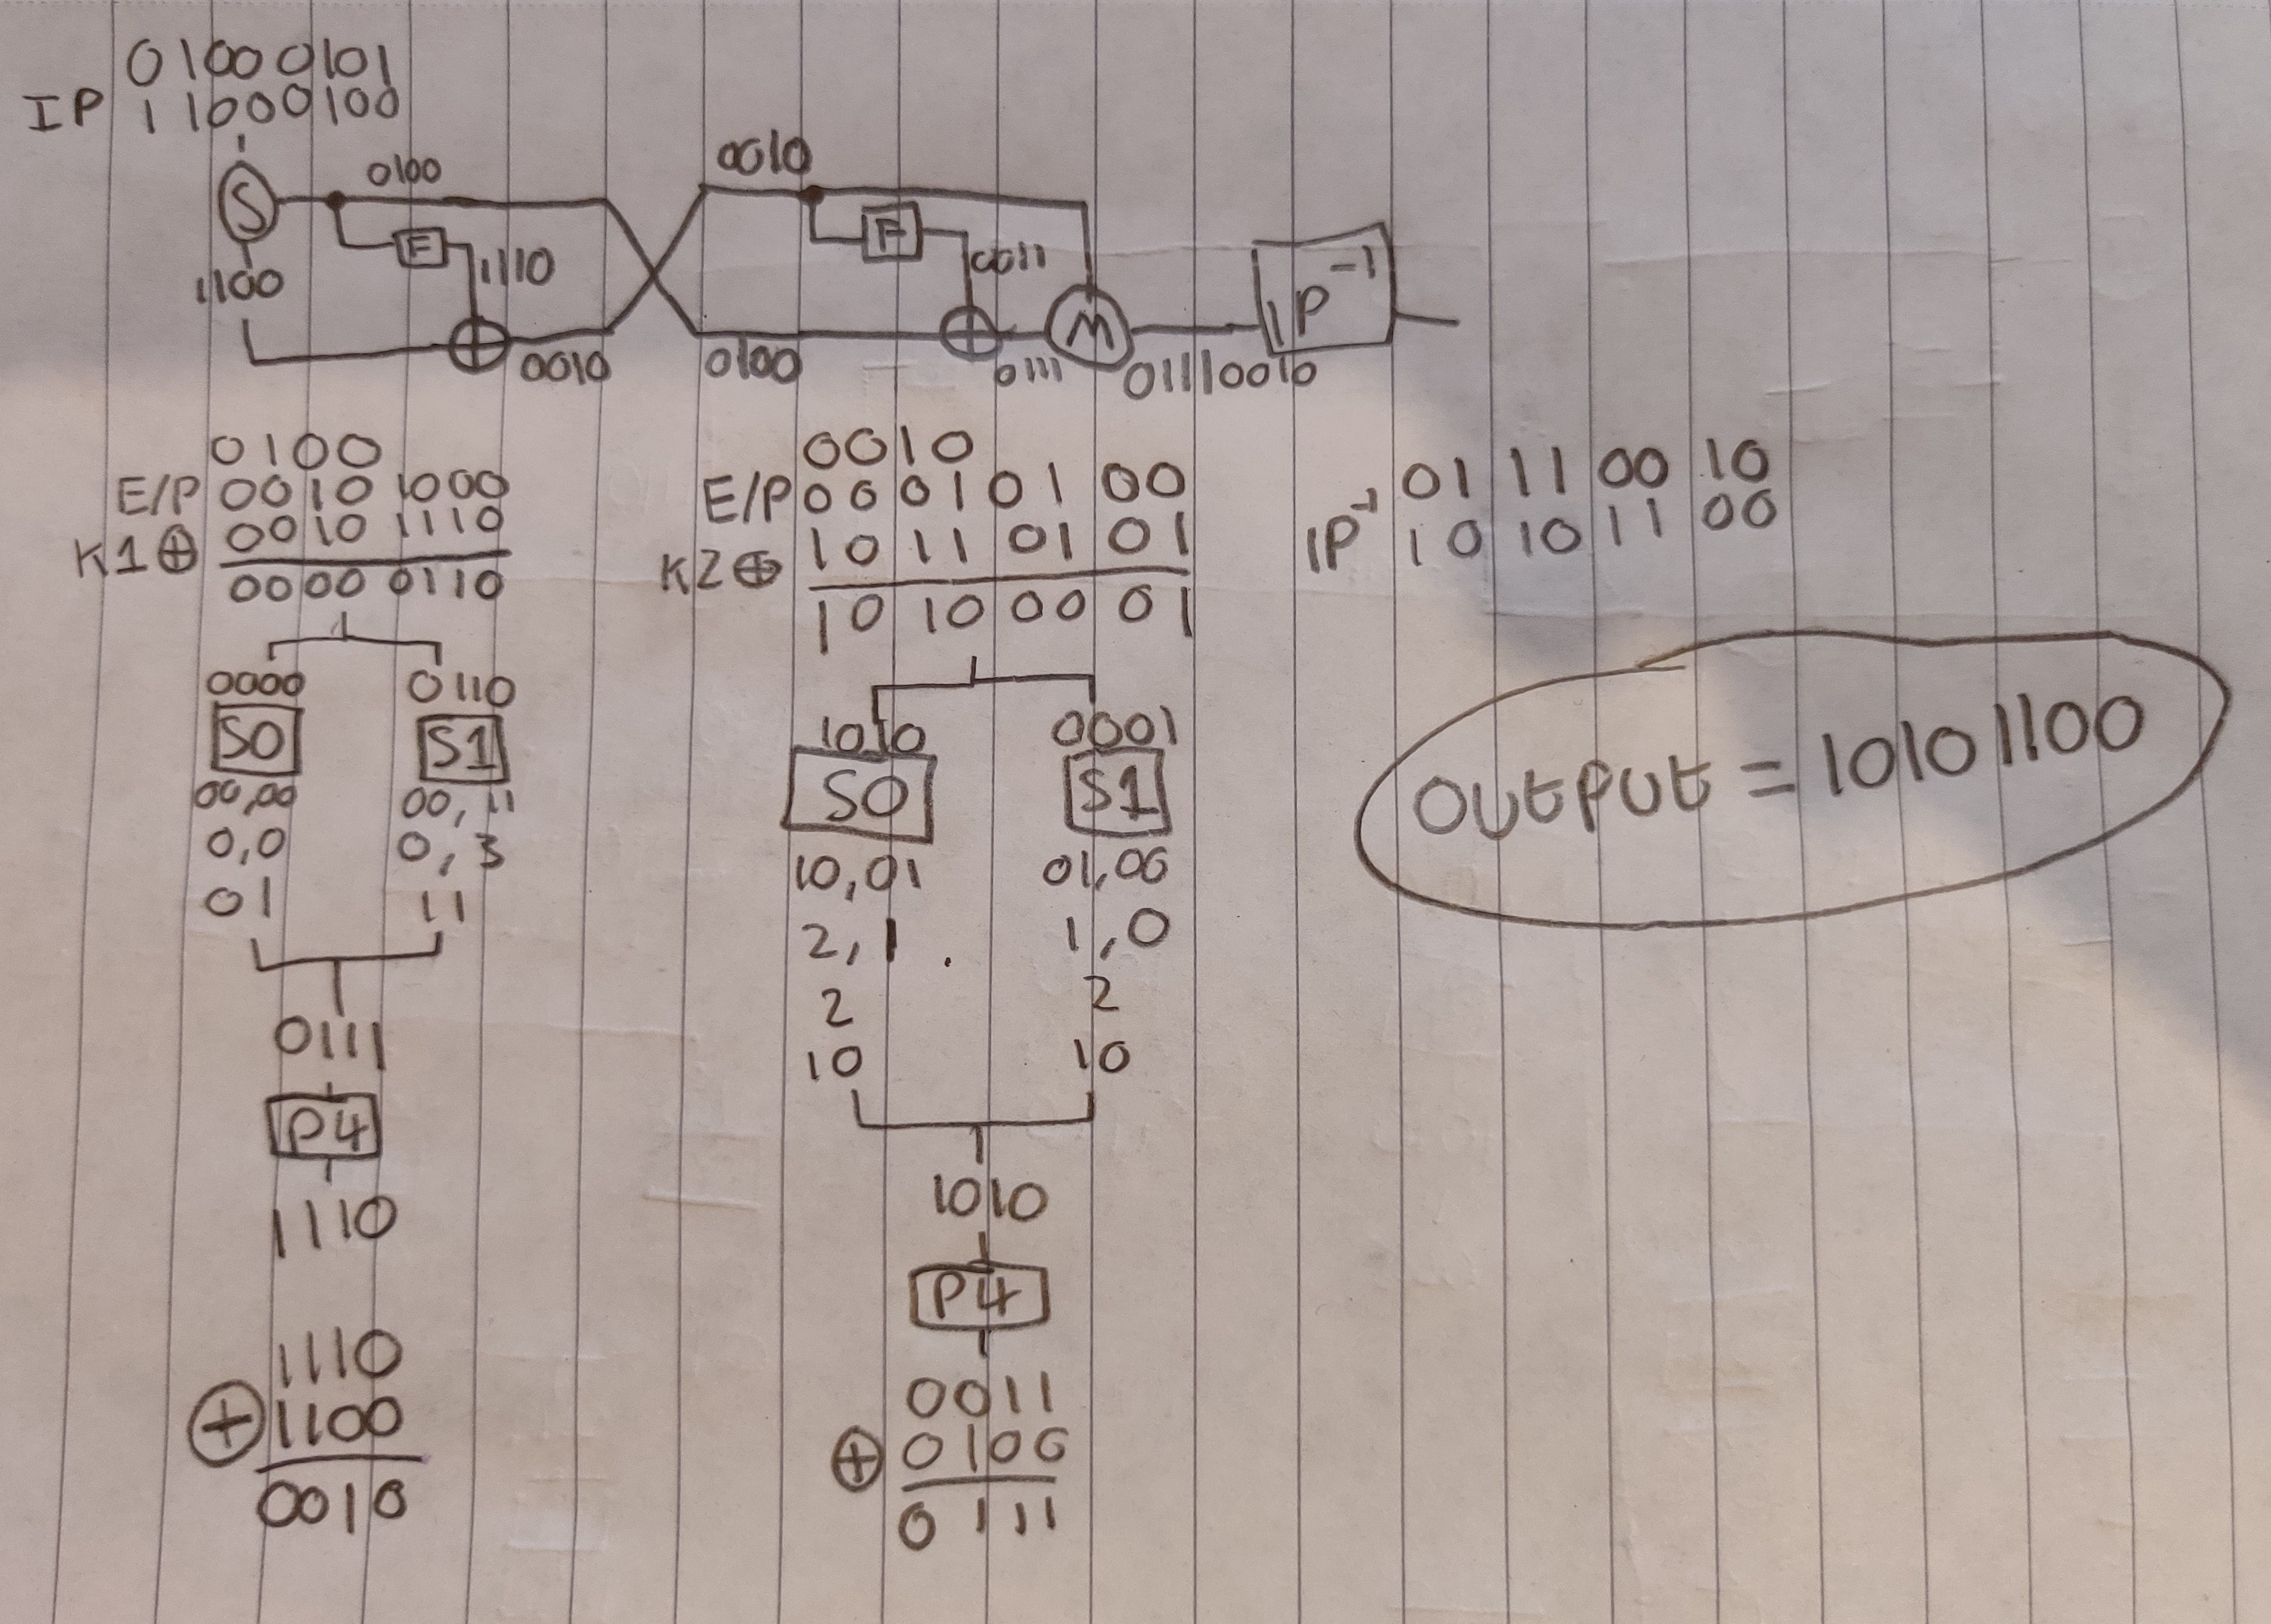 01000101
IP 11000100
S
0100
F
1110
1100
0010
0010
0100
F
0011
0111
M
01110010
IP⁻¹
0100
E/P 0010 1000
K1⊕ 0010 1110
0000 0110
0000 0110
S0 S1
00,00 00,11
0,0 0,3
01 11
0111
P4
1110
1110
⊕ 1100
0010
0010
E/P 00 01 01 00
K2⊕ 10 11 01 01
10 10 00 01
1010 0001
S0 S1
10,01 01,00
2,1. 1,0
2 2
10 10
1010
P4
0011
⊕ 0100
0111
01 11 00 10
IP⁻¹ 10 10 11 00
OUtPUt = 10101100